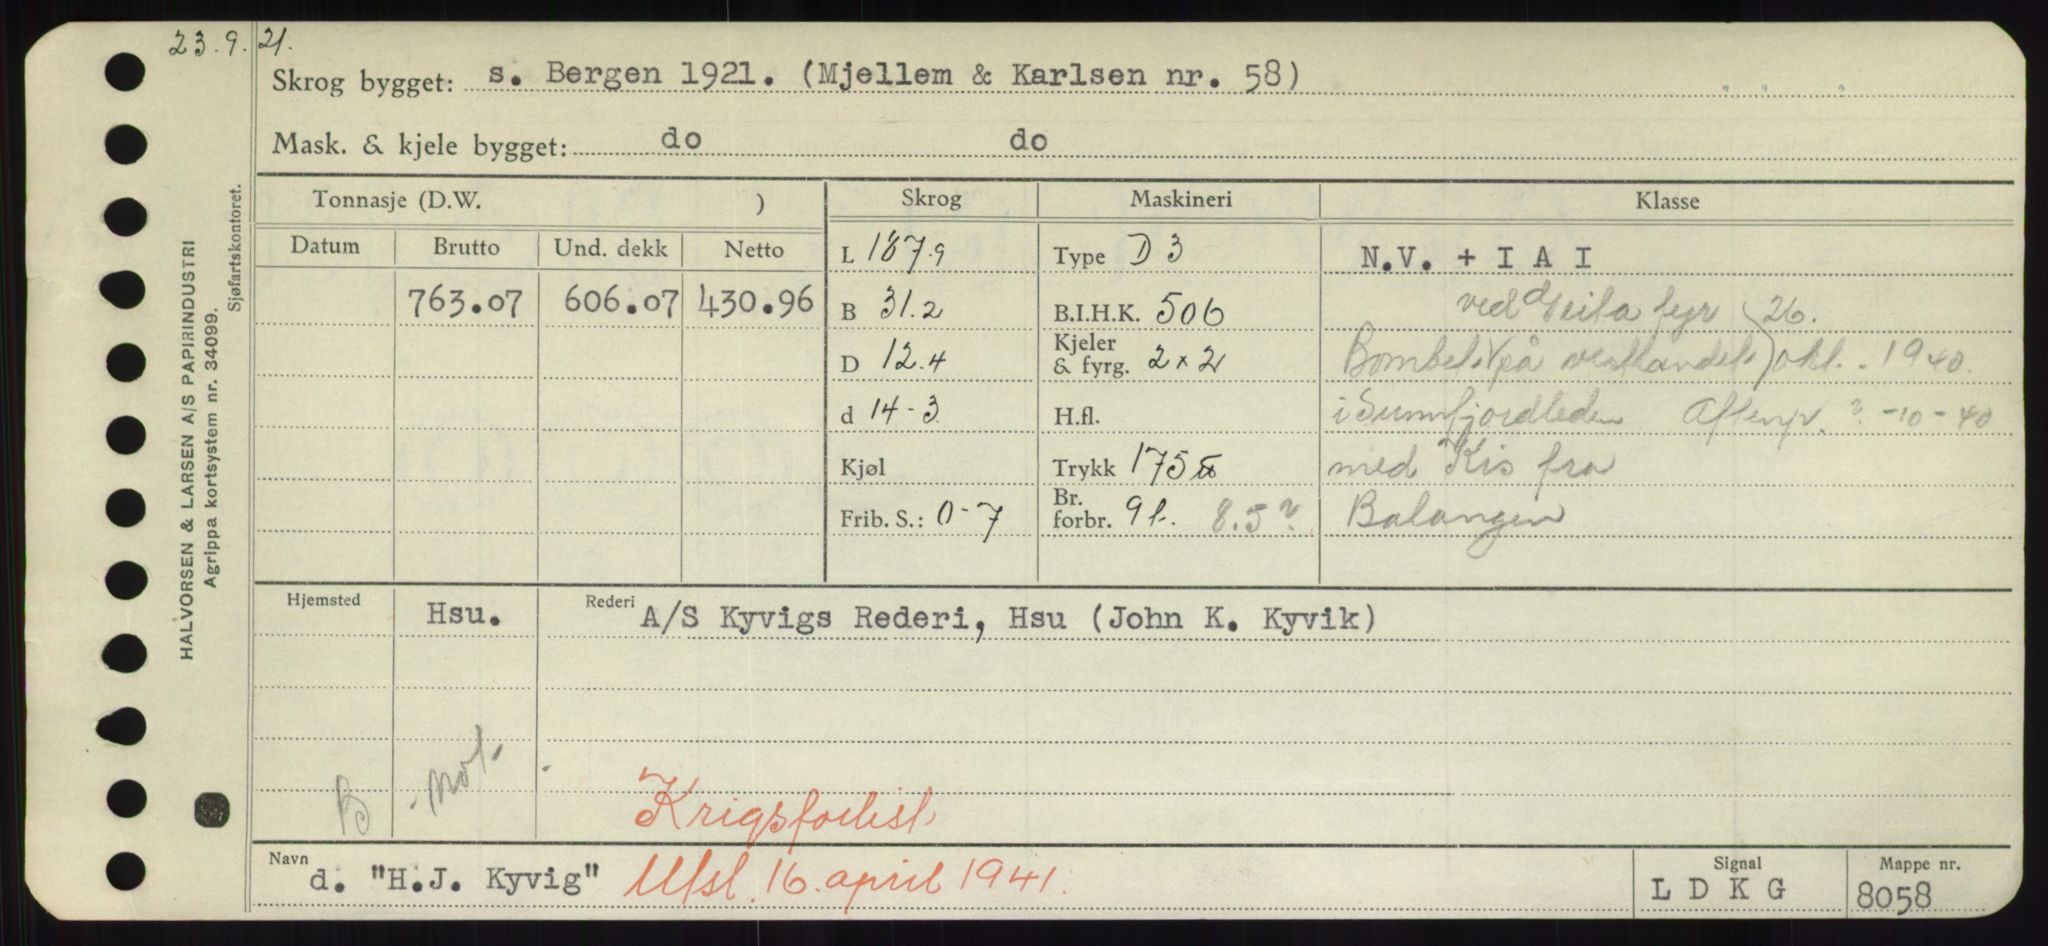 23.9.21.
Skrog bygget: s. Bergen 1921. (Mjellem & Karlsen nr. 58)
Mask. & kjele bygget: do do
HALVORSEN & LARSEN A/S PAPIRINDUSTRI
Agrippa kortsystem nr. 34099.
Sjøfartskontoret.
Tonnasje (D.W. ) Skrog Maskineri Klasse
Datum Brutto Und. dekk Netto L 187.9 Type D 3 N.V. + I A I
763.07 606.07 430.96 B 31.2 B.I.H.K. 506 ved Geita fyr 26.
D 12.4 Kjeler & fyrg. 2 x 2 Bombet på vestlandet okt. 1940.
d 14-3 H.fl. i Sunnfjordleden Aftenp. ? -10-40
Kjøl Trykk 175 med Kis fra
Frib. S.: 0-7 Br. forbr. 9 t. 8.5? Balangen
Hjemsted Hsu. Rederi A/S Kyvigs Rederi, Hsu (John K. Kyvik)
B not.
Krigsforlist
Navn d. "H.J. Kyvig" Utsl. 16. april 1941.
Signal L D K G
Mappe nr. 8058